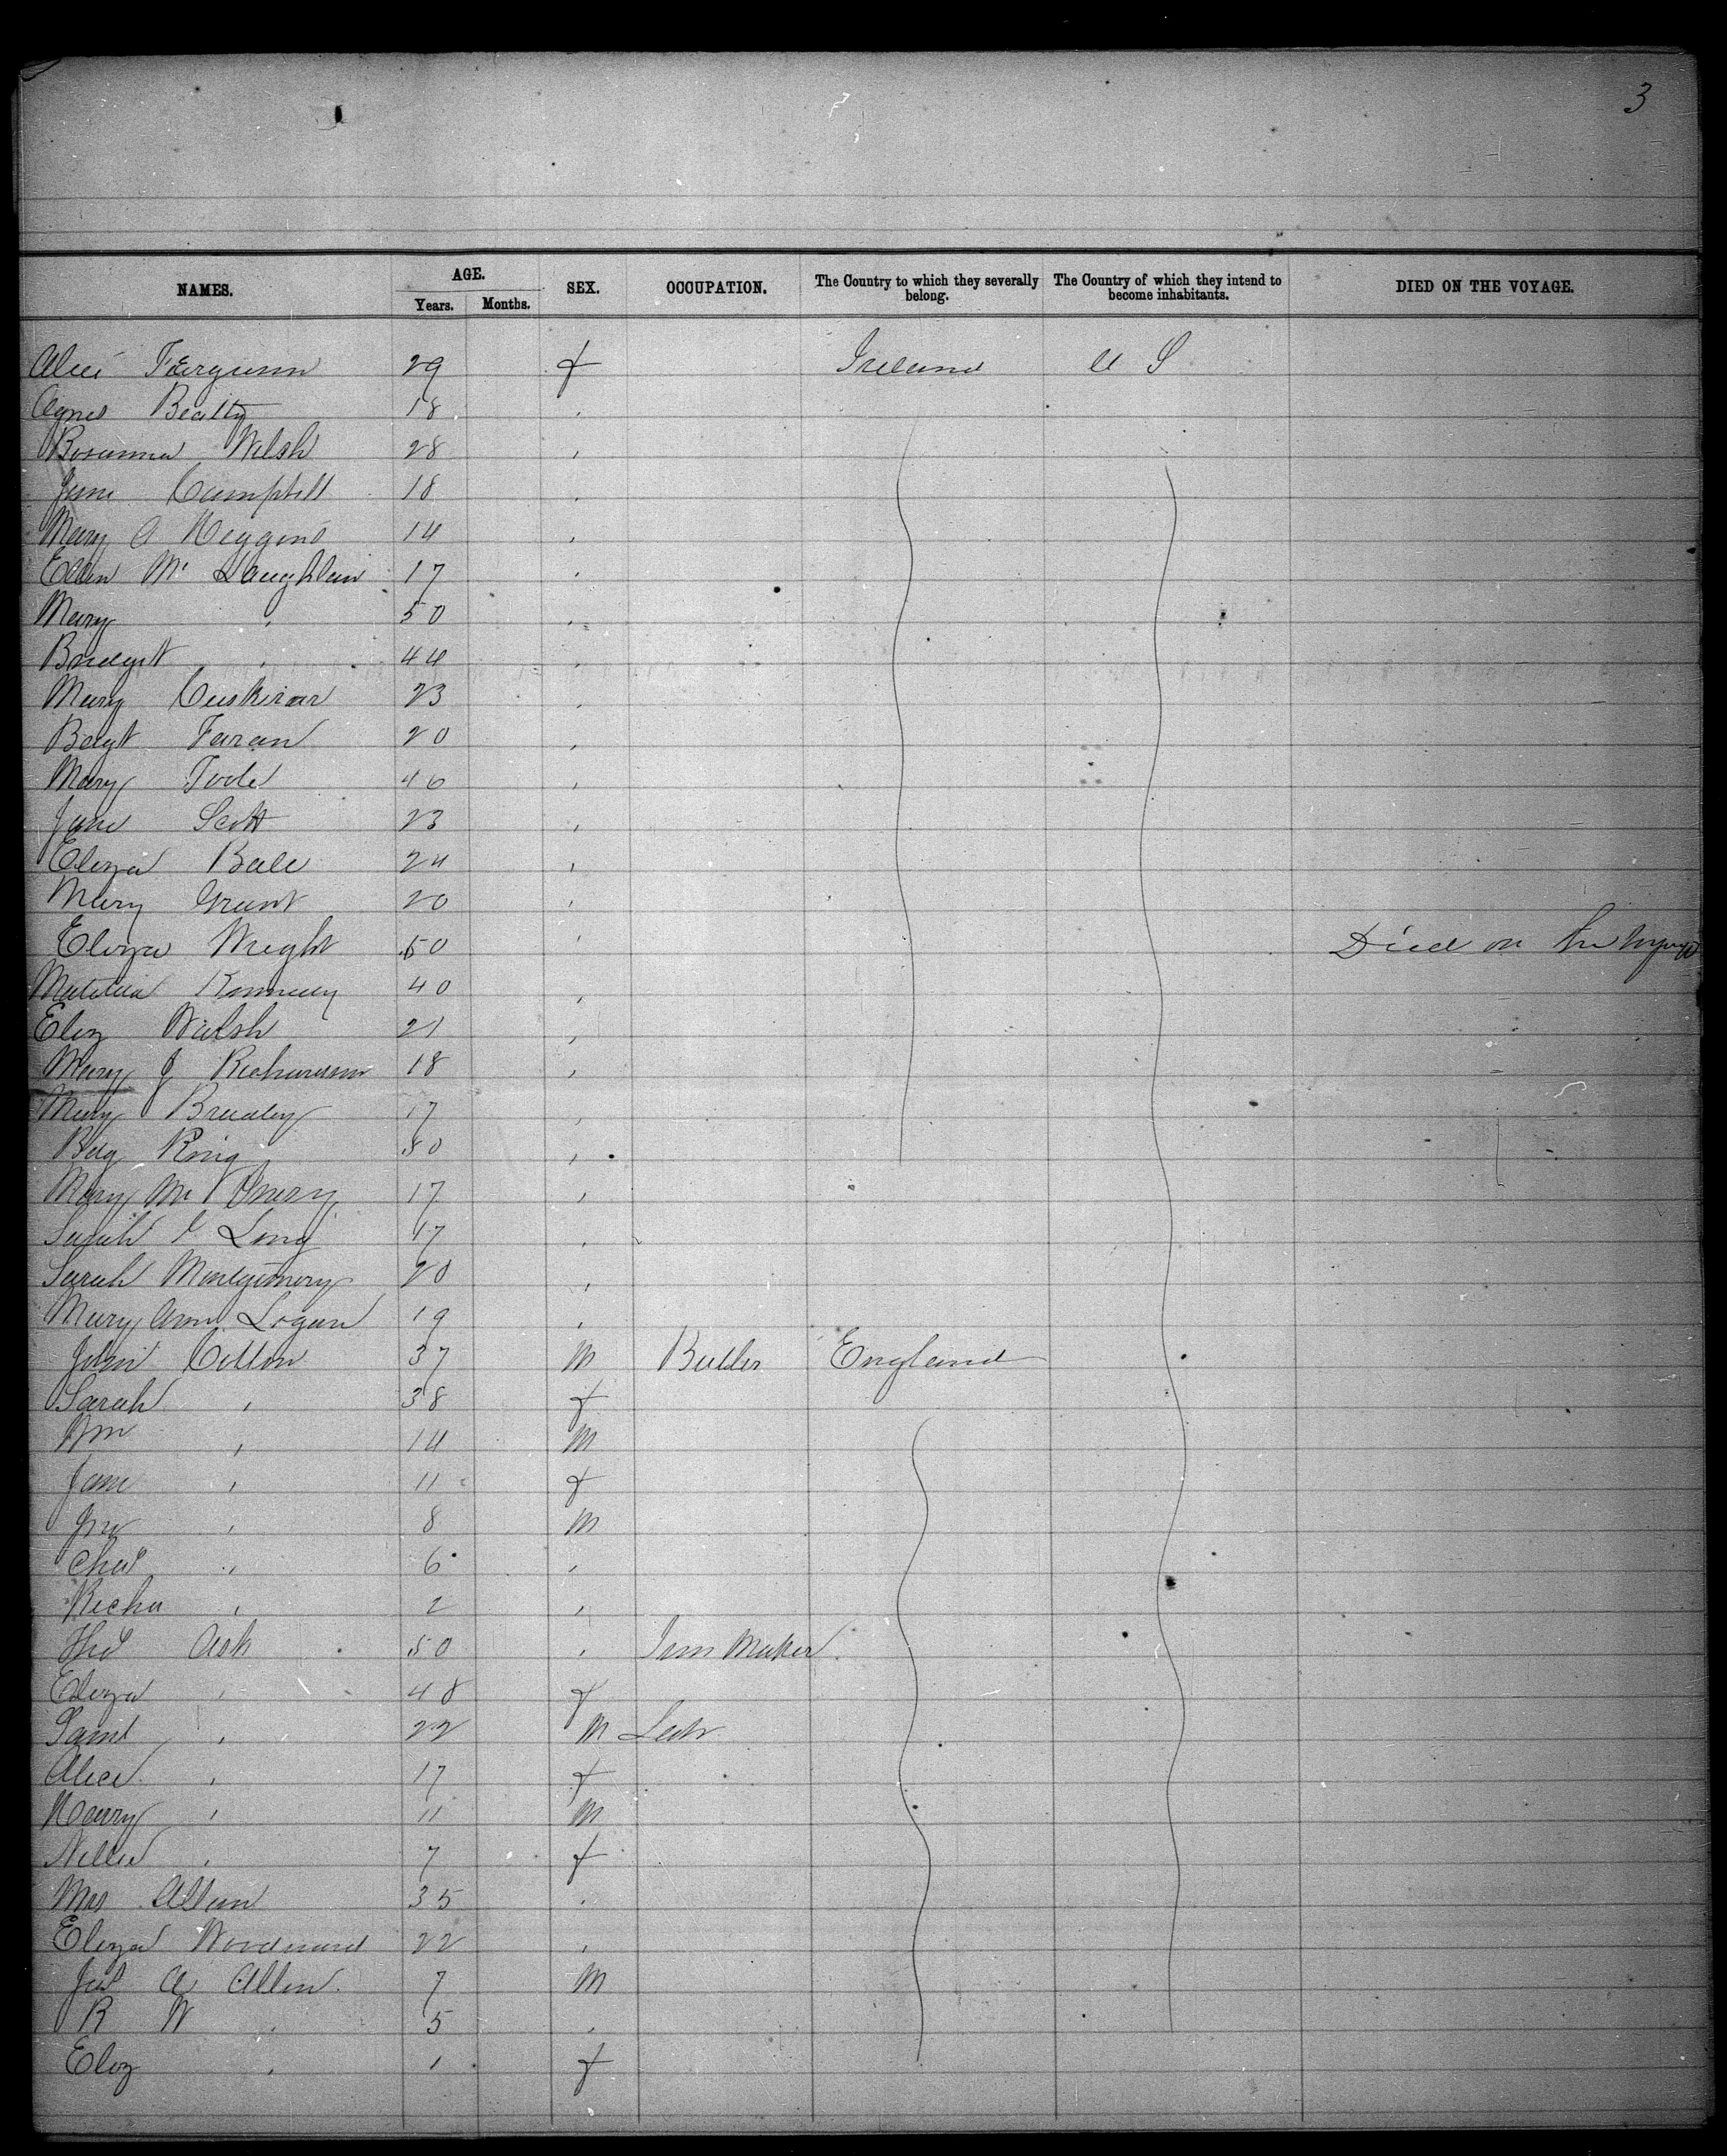 3
NAMES. AGE. SEX. OCCUPATION. The Country to which they severally belong. The Country of which they intend to become inhabitants. DIED ON THE VOYAGE.
Years. Months.
Alice Ferguson 29 f Ireland U S
Agnes Beatty 18 "
Rosanna Welsh 28 "
Jane Campbell 18 "
Mary A Higgins 14 "
Ellen Mc Laughlin 17 "
Mary " 50 "
Bridget " 44 "
Mary 23 "
Bdgt Faran 20 "
Mary Toole 46 "
Jane Scott 23 "
Eliza Bell 24 "
Mary Grant 20 "
Eliza Wright 50 " Died on the Voyage
Matilda Kennedy 40 "
Eliz Walsh 21 "
Mary J Richardson 18 "
Mary Bradley 17 "
Bdg King 50 "
Mary Mc 17 "
Sarah Long 17 "
Sarah Montgomery 20 "
Mary Ann Logan 19 "
John 37 M England
Sarah " 38 f
Wm " 14 M
Jane " 11 f
Jno " 8 M
Chas " 6 "
Richd " 2 "
Thos Ash 50 "
Eliza " 48 f
Saml " 22 M
Alice " 17 f
Harry " 11 M
Nellie " 7 f
Mrs Allen 35 "
Eliza Woodward 22 "
Jas A Allen 7 M
R W " 5 "
Eliz " 1 f